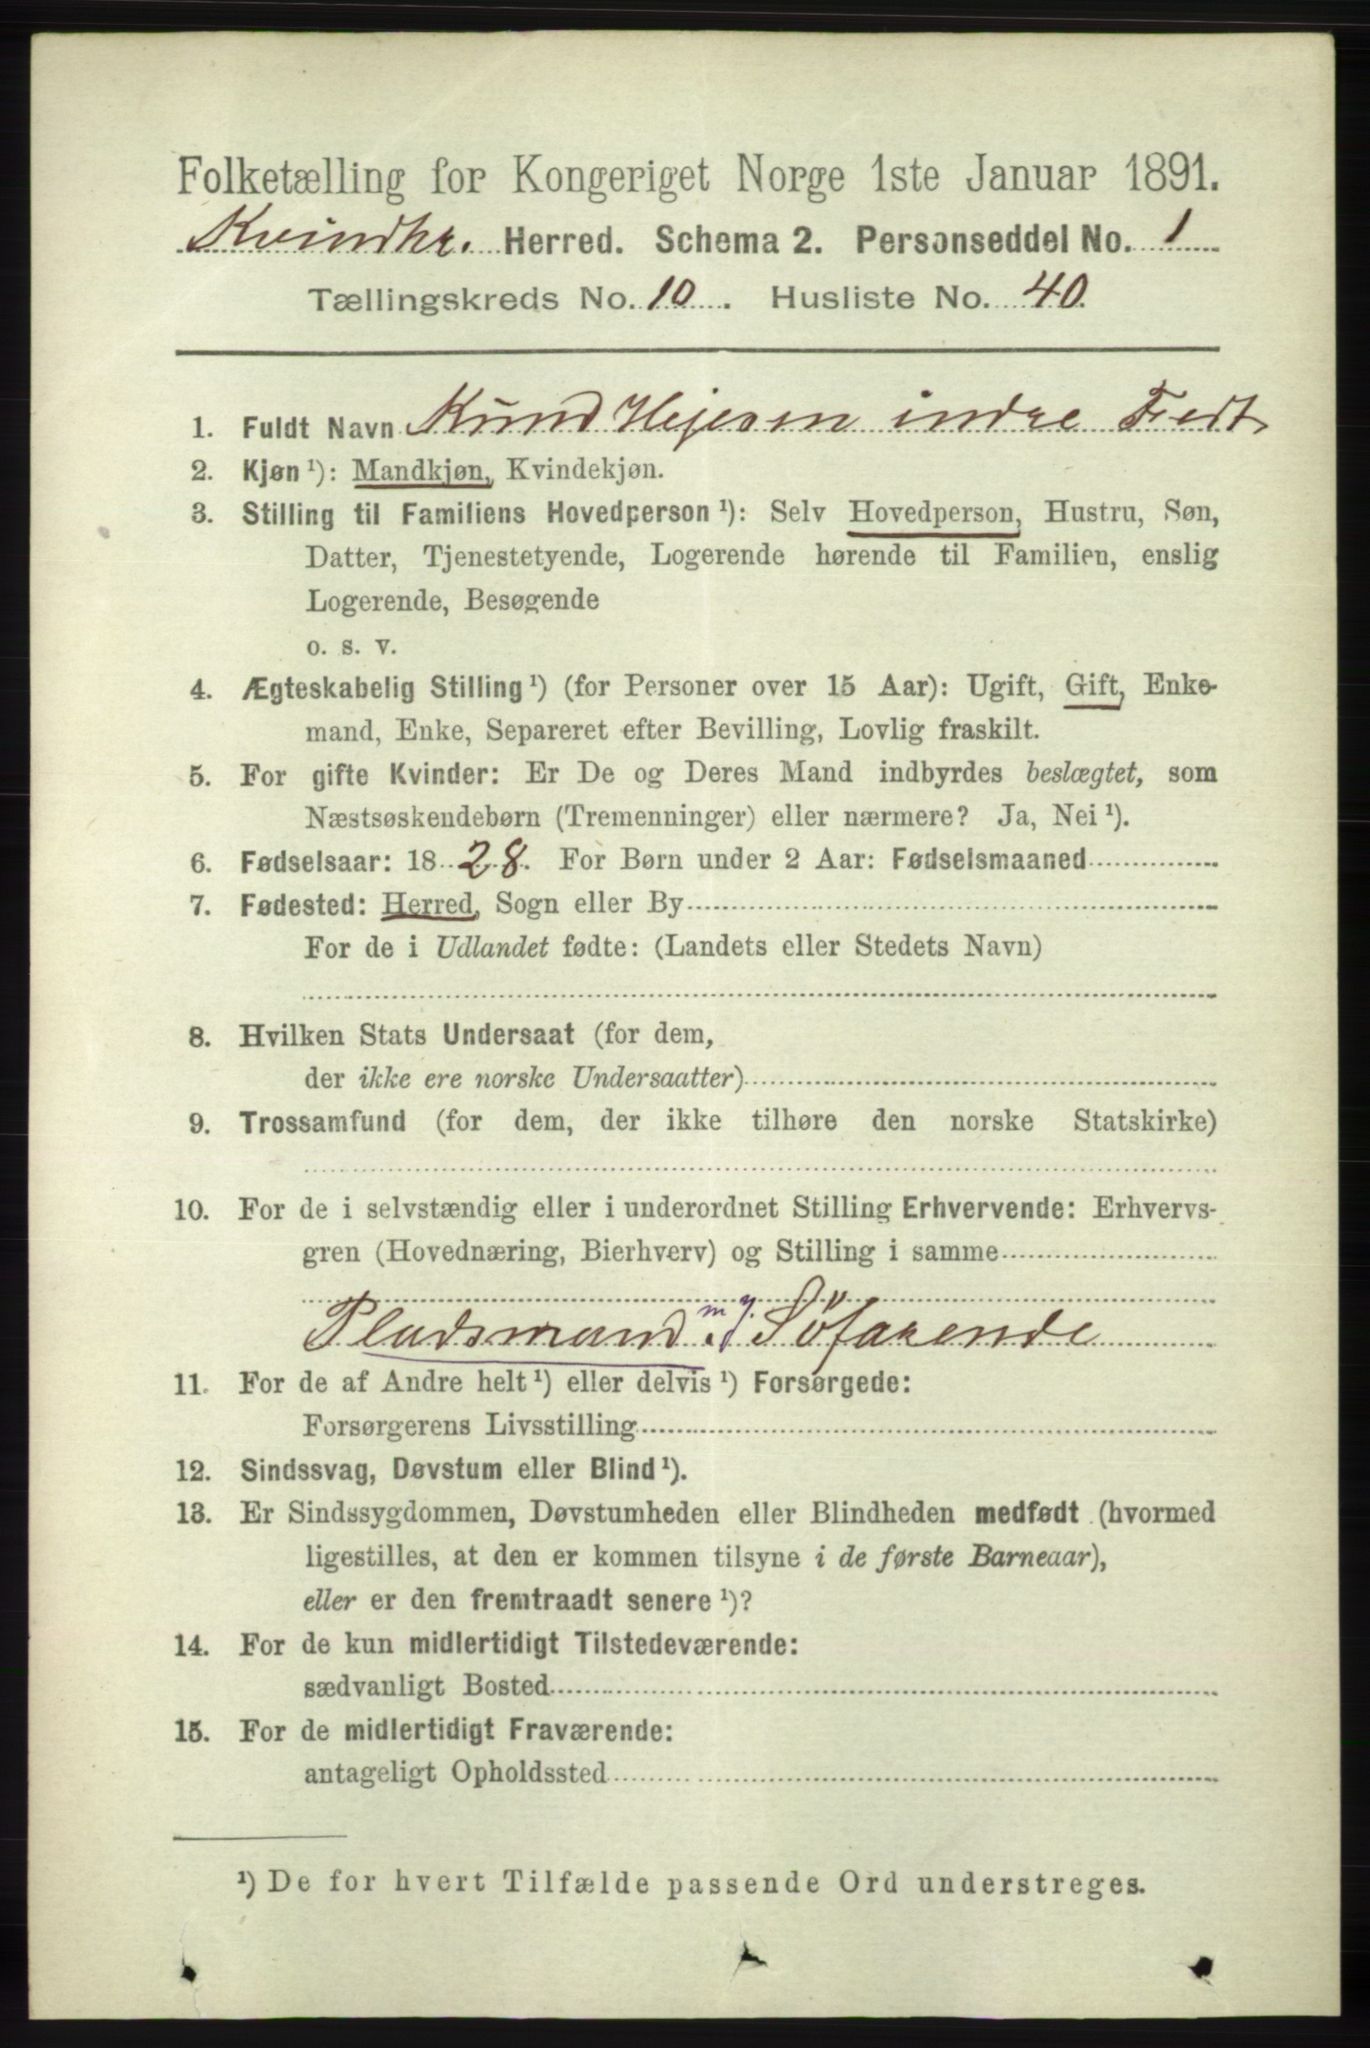 Folketælling for Kongeriget Norge 1ste Januar 1891.
Kvindhr. Herred. Schema 2. Personseddel No. 1
Tællingskreds No. 10. Husliste No. 40.
1. Fuldt Navn Knud indre
2. Kjøn ¹): Mandkjøn, Kvindekjøn.
3. Stilling til Familiens Hovedperson ¹): Selv Hovedperson, Hustru, Søn,
Datter, Tjenestetyende, Logerende hørende til Familien, enslig
Logerende, Besøgende
o. s. v.
4. Ægteskabelig Stilling ¹) (for Personer over 15 Aar): Ugift, Gift, Enke-
mand, Enke, Separeret efter Bevilling, Lovlig fraskilt.
5. For gifte Kvinder: Er De og Deres Mand indbyrdes beslægtet, som
Næstsøskendebørn (Tremenninger) eller nærmere? Ja, Nei ¹).
6. Fødselsaar: 18 28. For Børn under 2 Aar: Fødselsmaaned
7. Fødested: Herred, Sogn eller By
For de i Udlandet fødte: (Landets eller Stedets Navn)
8. Hvilken Stats Undersaat (for dem,
der ikke ere norske Undersaatter)
9. Trossamfund (for dem, der ikke tilhøre den norske Statskirke)
10. For de i selvstændig eller i underordnet Stilling Erhvervende: Erhvervs-
gren (Hovednæring, Bierhverv) og Stilling i samme
Pladsmand m. J. Söfarende
11. For de af Andre helt ¹) eller delvis ¹) Forsørgede:
Forsørgerens Livsstilling
12. Sindssvag, Døvstum eller Blind ¹).
13. Er Sindssygdommen, Døvstumheden eller Blindheden medfødt (hvormed
ligestilles, at den er kommen tilsyne i de første Barneaar),
eller er den fremtraadt senere ¹)?
14. For de kun midlertidigt Tilstedeværende:
sædvanligt Bosted
15. For de midlertidigt Fraværende:
antageligt Opholdssted
¹) De for hvert Tilfælde passende Ord understreges.